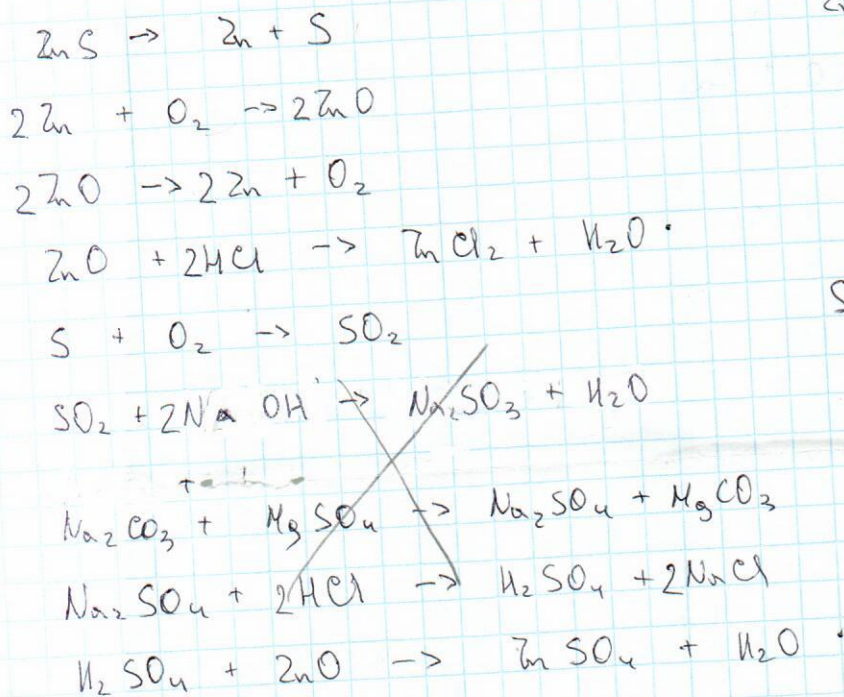 ZnS -> Zn + S
2Zn + O₂ -> 2ZnO
2ZnO -> 2Zn + O₂
ZnO + 2HCl -> ZnCl₂ + H₂O
S + O₂ -> SO₂
SO₂ + 2NaOH -> Na₂SO₃ + H₂O
Na₂CO₃ + MgSO₄ -> Na₂SO₄ + MgCO₃
Na₂SO₄ + 2HCl -> H₂SO₄ + 2NaCl
H₂SO₄ + ZnO -> ZnSO₄ + H₂O